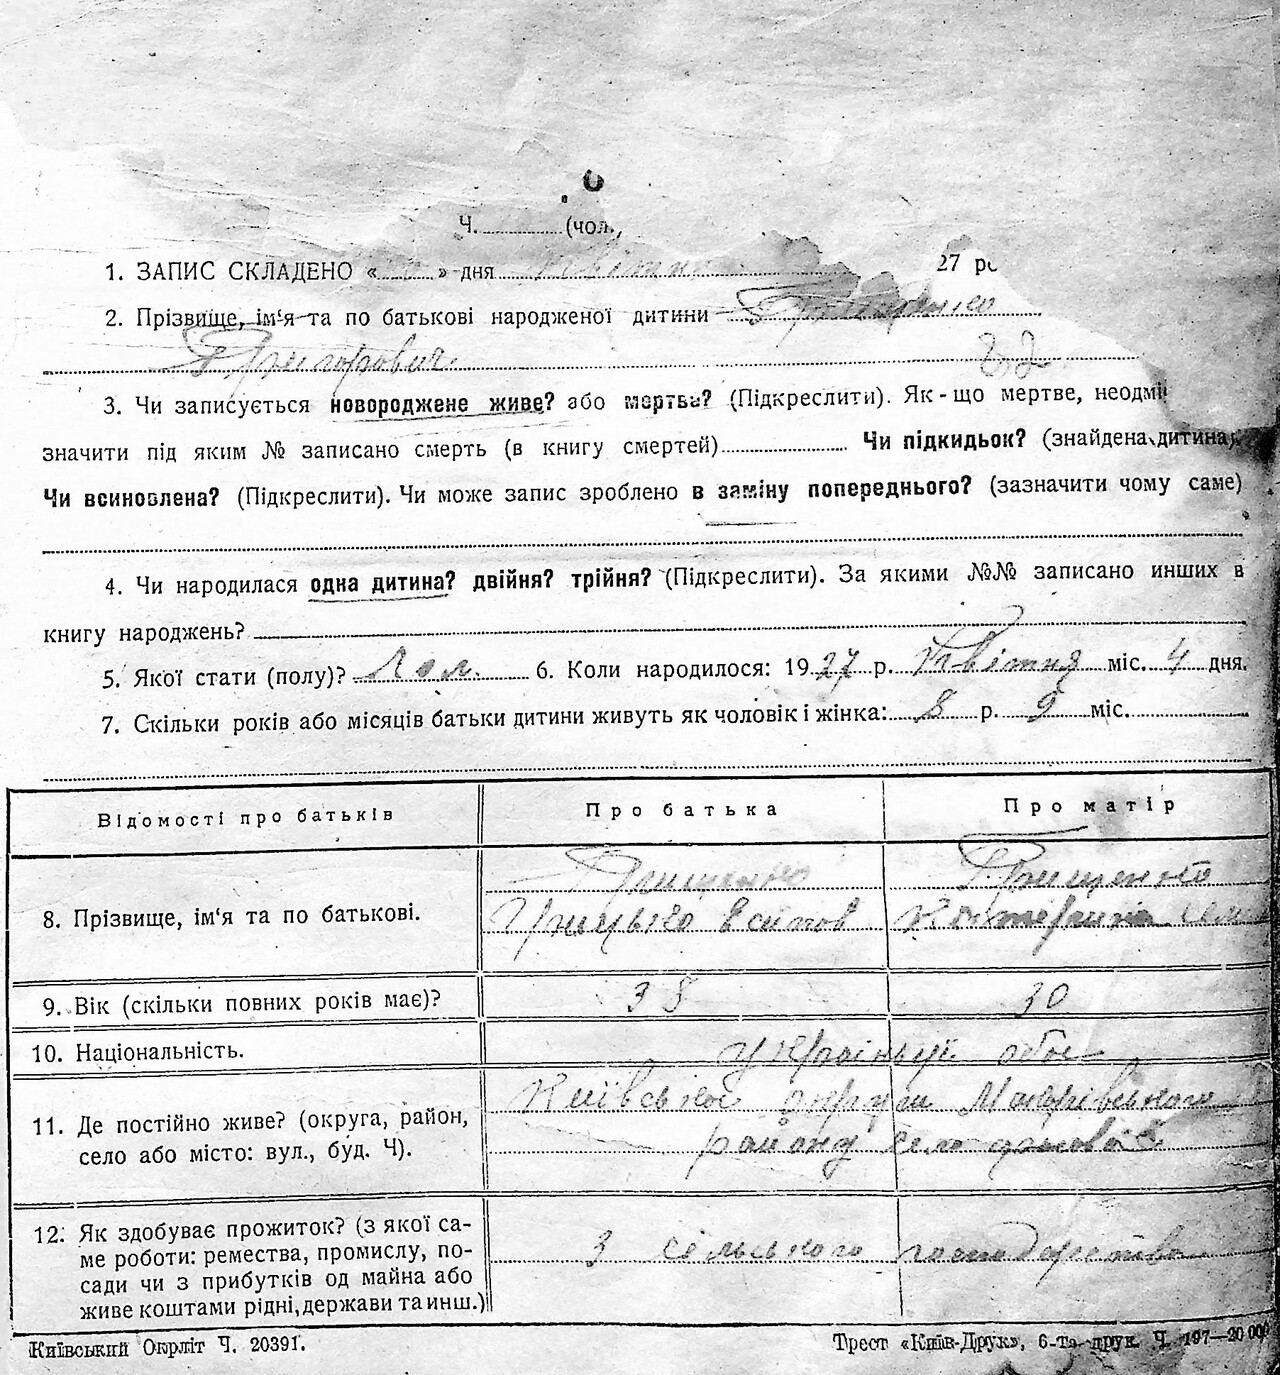 Ч. (чол.,
1. ЗАПИС СКЛАДЕНО « » дня квітня 27 рс
2. Прізвище, ім‘я та по батькові народженої дитини Грищенко
Григорович
3. Чи записується новороджене живе? або мертве? (Підкреслити). Як-що мертве, неодмі
значити під яким № записано смерть (в книгу смертей) Чи підкидьок? (знайдена дитина).
Чи всиновлена? (Підкреслити). Чи може запис зроблено в заміну попереднього? (зазначити чому саме)
4. Чи народилася одна дитина? двійня? трійня? (Підкреслити). За якими №№ записано инших в
книгу народжень?
5. Якої стати (полу)? Чол. 6. Коли народилося: 1927 р. Квітня міс. 4 дня.
7. Скільки років або місяців батьки дитини живуть як чоловік і жінка: 8 р. 9 міс.
Відомості про батьків Про батька Про матір
Грищенко Грищенко
8. Прізвище, ім‘я та по батькові. Катерина
9. Вік (скільки повних років має)? 38 30
10. Національність. українці обоє
11. Де постійно живе? (округа, район, село або місто: вул., буд. Ч). Київської округи Макарівського
району село
12. Як здобуває прожиток? (з якої са-
ме роботи: ремества, промислу, по-
сади чи з прибутків од майна або
живе коштами рідні, держави та инш.) З сільського господарства
Київський Окрліт Ч. 20391. Трест «Київ-Друк», 6-та друк. Ч. 197—20 000